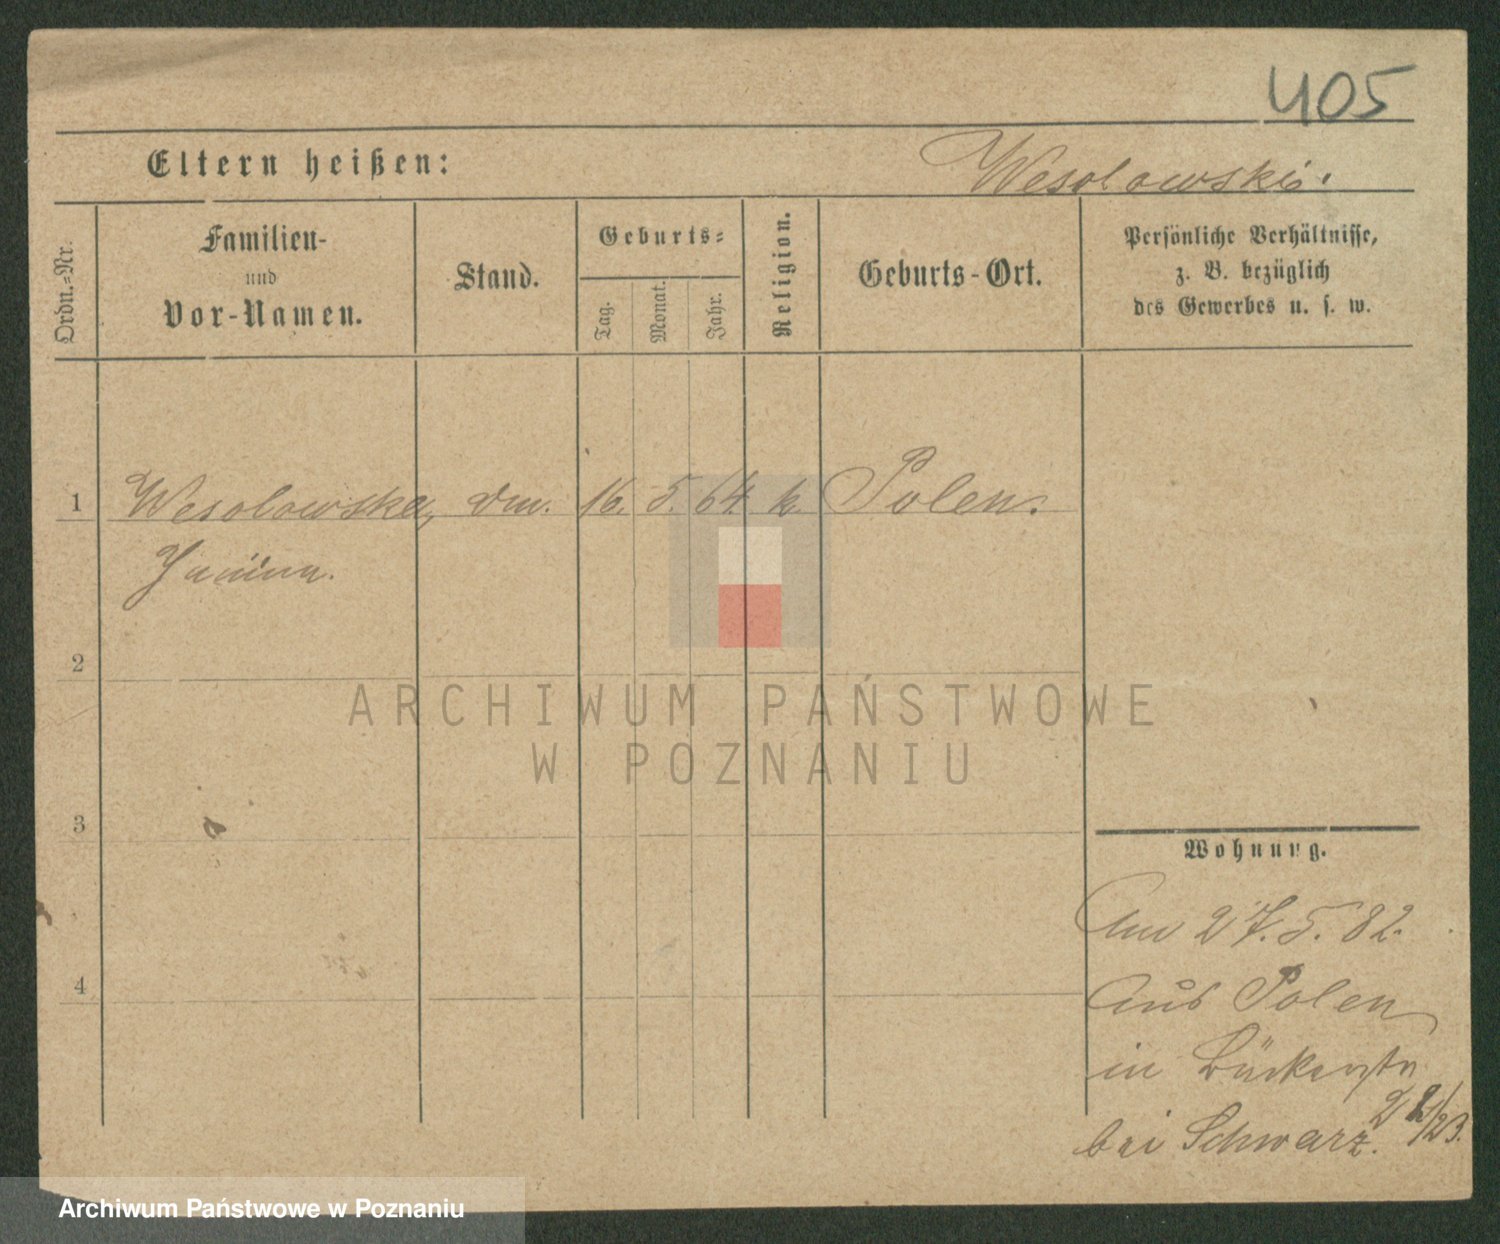 405
Eltern heißen: Wesolowski.
Ordn.=Nr.
Familien-
und
Vor-Namen.
Stand.
Geburts=
Tag.
Monat.
Jahr.
Religion.
Geburts-Ort.
Persönliche Verhältnisse,
z. B. bezüglich
des Gewerbes u. s. w.
1 Wesolowska, 16. 5. 64. k. Polen.
Janina.
2
3
4
ARCHIWUM PAŃSTWOWE
W POZNANIU
Wohnung.
Am 27. 5. 82.
aus Polen
in
bei Schwarz.
Archiwum Państwowe w Poznaniu